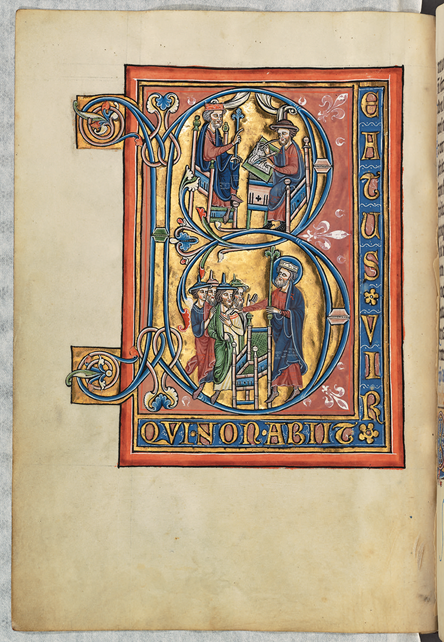 BEATUS VIR
QVI·NON·ABIIT